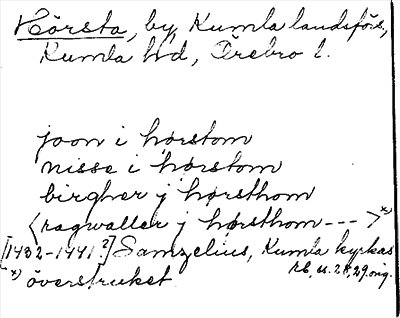 Hörsta, by, Kumla landsförs.,
Kumla hd, Örebro l.
joon i hørstom
nisse i hørstom
birgher j hørsthom
<ragwaller j hørsthom --- >x)
[1432-1441?] Samzelius, Kumla kyrkas
x) överstruket RB, s. 28, 29. orig.